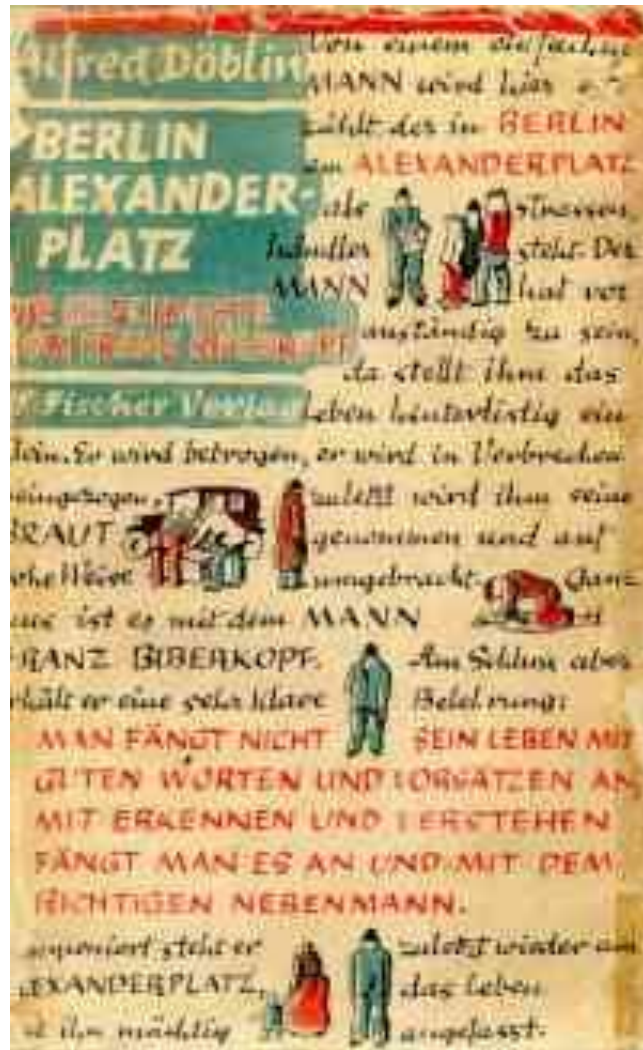 Alfred Döblin
BERLIN
ALEXANDER-
PLATZ
S. Fischer Verlag
Von einem einfachen
MANN wird hier er-
zählt, der in BERLIN
am ALEXANDERPLATZ
als strassen
händler steht. Der
MANN hat vor
anständig zu sein,
da stellt ihm das
Leben hinterlistig ein
Bein. Er wird betrogen, er wird in Verbrechen
eingezogen, zuletzt wird ihm seine
BRAUT genommen und auf
rohe Weise umgebracht. Ganz
aus ist es mit dem MANN
FRANZ BIBERKOPF. Am Schluss aber
erhält er eine sehr klare Belehrung:
MAN FÄNGT NICHT SEIN LEBEN MIT
GUTEN WORTEN UND VORSÄTZEN AN
MIT ERKENNEN UND VERSTEHEN
FÄNGT MAN ES AN UND MIT DEM
RICHTIGEN NEBENMANN.
steht er zuletzt wieder am
ALEXANDERPLATZ, das Leben
hat ihn mächtig angefasst.